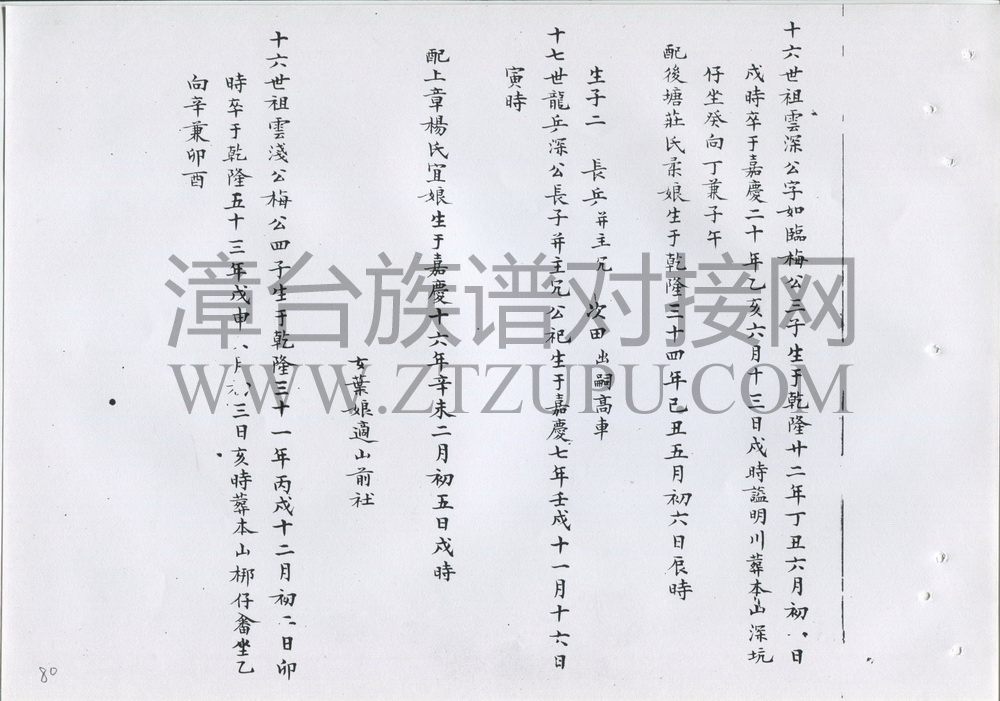 十六世祖雲深公字如臨梅公三子生于乾隆廿二年丁丑六月初日
戌時卒于嘉慶二十年乙亥六月十三日戌時謚明川葬本山深坑
仔坐癸向丁兼子午
配後塘莊氏柔娘生于乾隆三十四年己丑五月初六日辰時
生子二 長乒并主兄 次田出嗣高車
十七世龍乒深公長子并主兄公祀生于嘉慶七年壬戌十一月十六日
寅時
配上章楊氏宜娘生于嘉慶十六年辛未二月初五日戌時
女葉娘適山前社
十六世祖雲淺公梅公四子生于乾隆三十一年丙戌十二月初二日卯
時卒于乾隆五十三年戊申月初三日亥時葬本山梛仔畬坐乙
向辛兼卯酉
漳台族谱对接网
WWW.ZTZUPU.COM
80